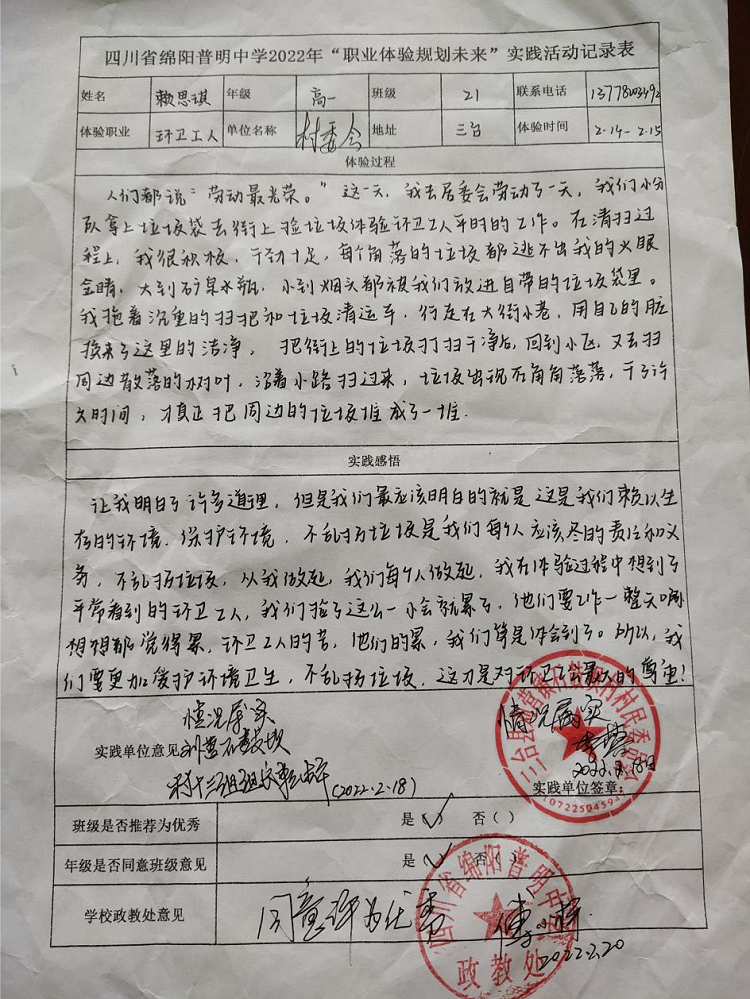 四川省绵阳普明中学2022年“职业体验规划未来”实践活动记录表
姓名 赖思琪 年级 高一 班级 21 联系电话
体验职业 环卫工人 单位名称 村委会 地址 三台 体验时间 2.14-2.15
体验过程
人们都说“劳动最光荣。”这一天,我去居委会劳动了一天,我们小分
队拿上垃圾袋去街上捡垃圾体验环卫工人平时的工作。在清扫过
程上,我很积极,干劲十足,每个角落的垃圾都逃不出我的火眼
金睛,大到矿泉水瓶,小到烟头都被我们放进自带的垃圾袋里。
我拖着沉重的扫把和垃圾清运车,行走在大街小巷,用自己的脏
换来了这里的洁净,把街上的垃圾打扫干净后,回到小区,又去扫
周边散落的树叶,沿着小路扫过来,垃圾出现在角角落落,干了许
久时间,才真正把周边的垃圾堆成了一堆.
实践感悟
让我明白了许多道理,但是我们最应该明白的就是这是我们赖以生
存的环境.保护环境,不乱扔垃圾是我们每个人应该尽的责任和义
务,不乱扔垃圾,从我做起,我们每个人做起,我在体验过程中想到了
平常看到的环卫工人,我们捡了这么一小会就累了,他们要工作一整天啊
想想都觉得累,环卫工人的苦,他们的累,我们算是体会到了。所以,我
们需要更加爱护环境卫生,不乱扔垃圾,这才是对环卫工人最大的尊重!
情况属实
实践单位意见
(2022.2.18)
情况属实
村民委员会
实践单位签章:
1072250459
班级是否推荐为优秀 是(✓) 否()
年级是否同意班级意见 是(✓) 否()
学校政教处意见 同意评为优秀
四川省绵阳普明中学
政教处
2022.2.20